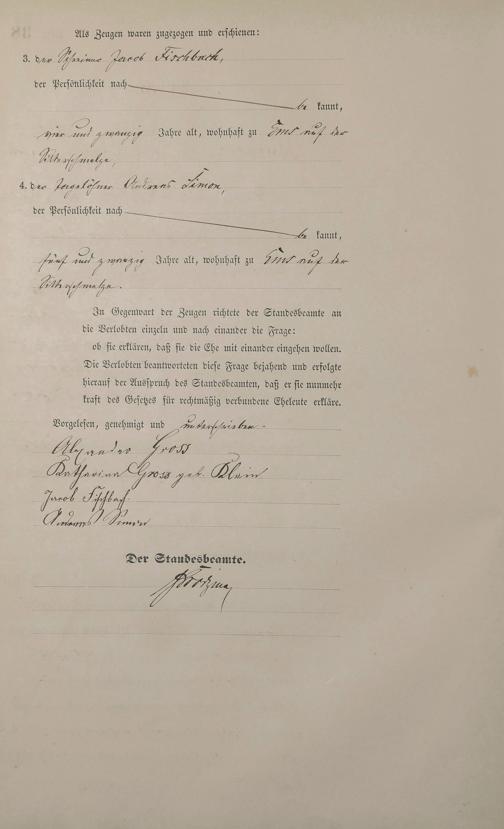 Als Zeugen waren zugezogen und erschienen:
3. der Schreiner Jacob Fischbach,
der Persönlichkeit nach
be kannt,
vier und zwanzig Jahre alt, wohnhaft zu Ems auf der
Silberschmelze,
4. der Tagelöhner Andreas Simon,
der Persönlichkeit nach
be kannt,
fünf und zwanzig Jahre alt, wohnhaft zu Ems auf der
Silberschmelze.
In Gegenwart der Zeugen richtete der Standesbeamte an
die Verlobten einzeln und nach einander die Frage:
ob sie erklären, daß sie die Ehe mit einander eingehen wollen.
Die Verlobten beantworteten diese Frage bejahend und erfolgte
hierauf der Ausspruch des Standesbeamten, daß er sie nunmehr
kraft des Gesetzes für rechtmäßig verbundene Eheleute erkläre.
Vorgelesen, genehmigt und unterschrieben.
Alexander Gross
Katharina Gross geb. Klein
Jacob Fischbach
Andreas Simon
Der Standesbeamte.